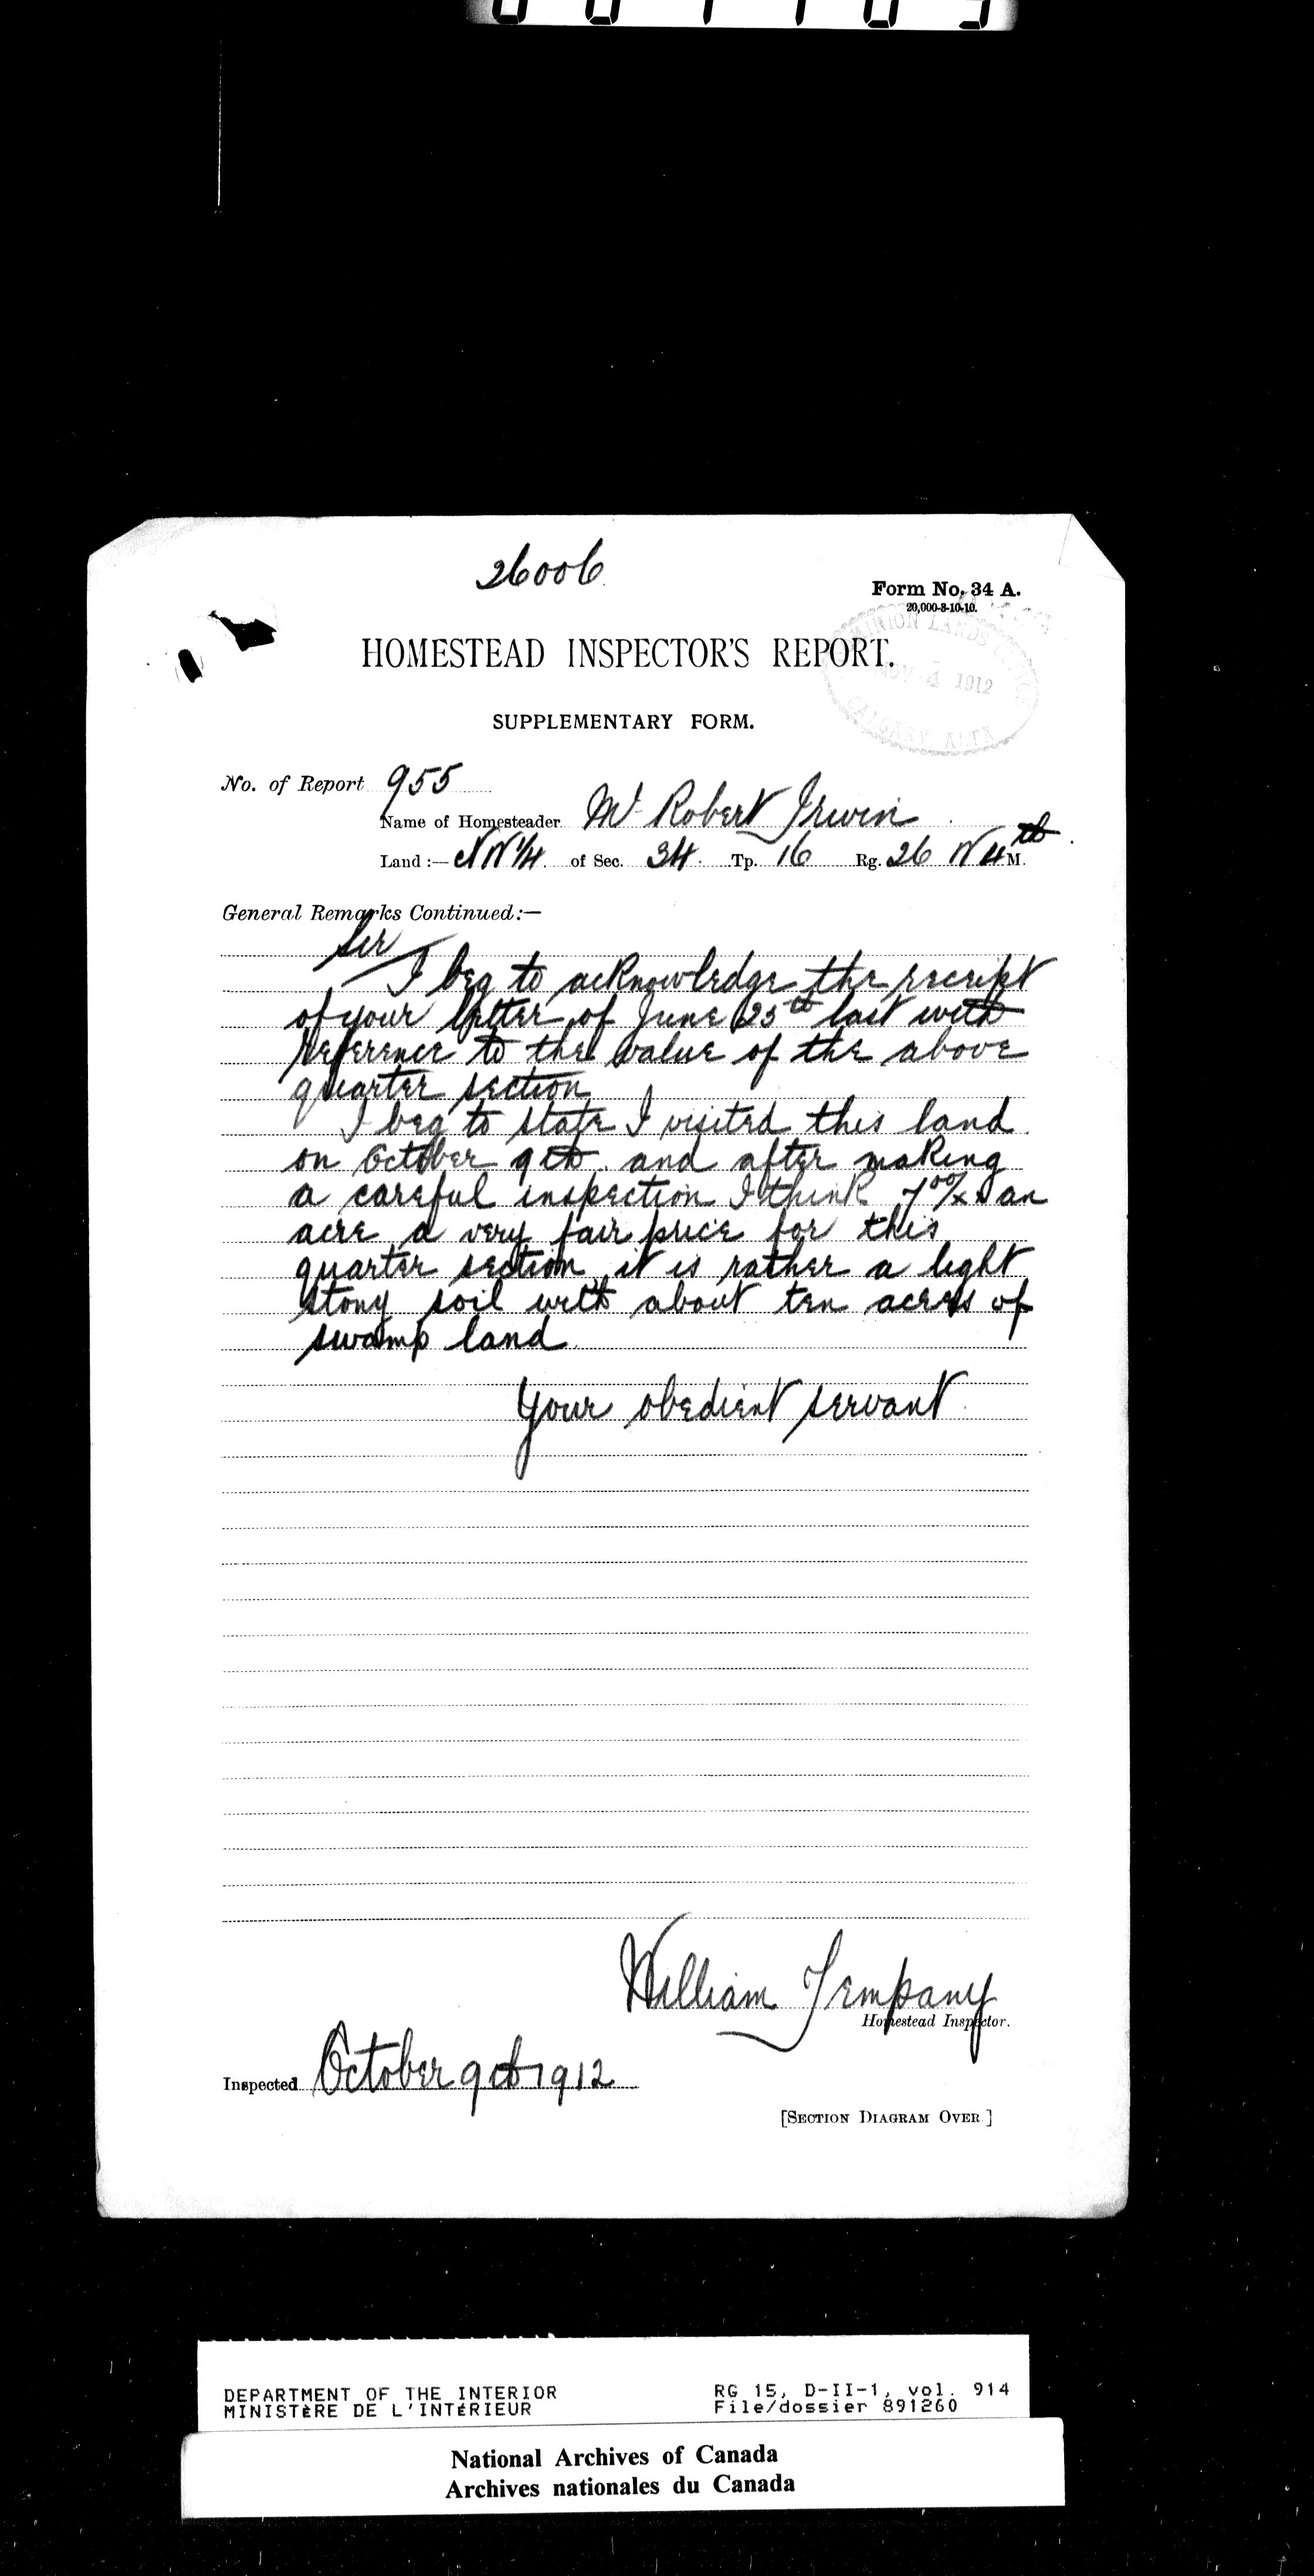 26006
Form No. 34 A.
20,000-8-10-10.
HOMESTEAD INSPECTOR'S REPORT.
MINION LANDS OFFICE
NOV 4 1912
CALGARY ALTA
SUPPLEMENTARY FORM.
No. of Report 955
Name of Homesteader Mr Robert Irwin
Land :— NW 1/4 of Sec. 34 Tp. 16 Rg. 26 W 4th M.
General Remarks Continued:—
Sir
I beg to acknowledge the receipt
of your letter of June 25th last with
reference to the value of the above
quarter section
I beg to state I visited this land
on October 9th and after making
a careful inspection I think an
acre a very fair price for this
quarter section it is rather a light
stony soil with about ten acres of
swamp land
Your obedient servant
William Tempany
Homestead Inspector.
Inspected October 9th 1912
[SECTION DIAGRAM OVER]
DEPARTMENT OF THE INTERIOR RG 15, D-II-1, vol. 914
MINISTÈRE DE L'INTÉRIEUR File/dossier 891260
National Archives of Canada
Archives nationales du Canada